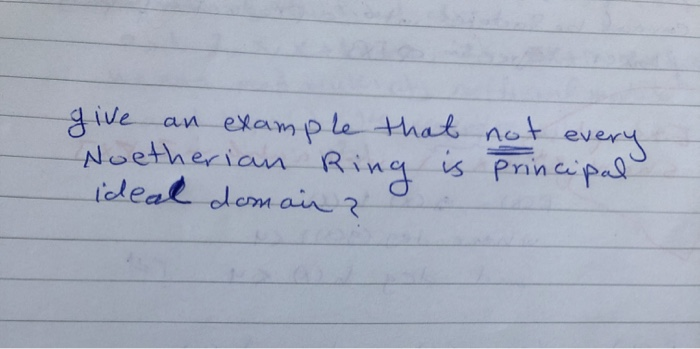 give an example that not every
Noetherian Ring is principal
ideal domain?